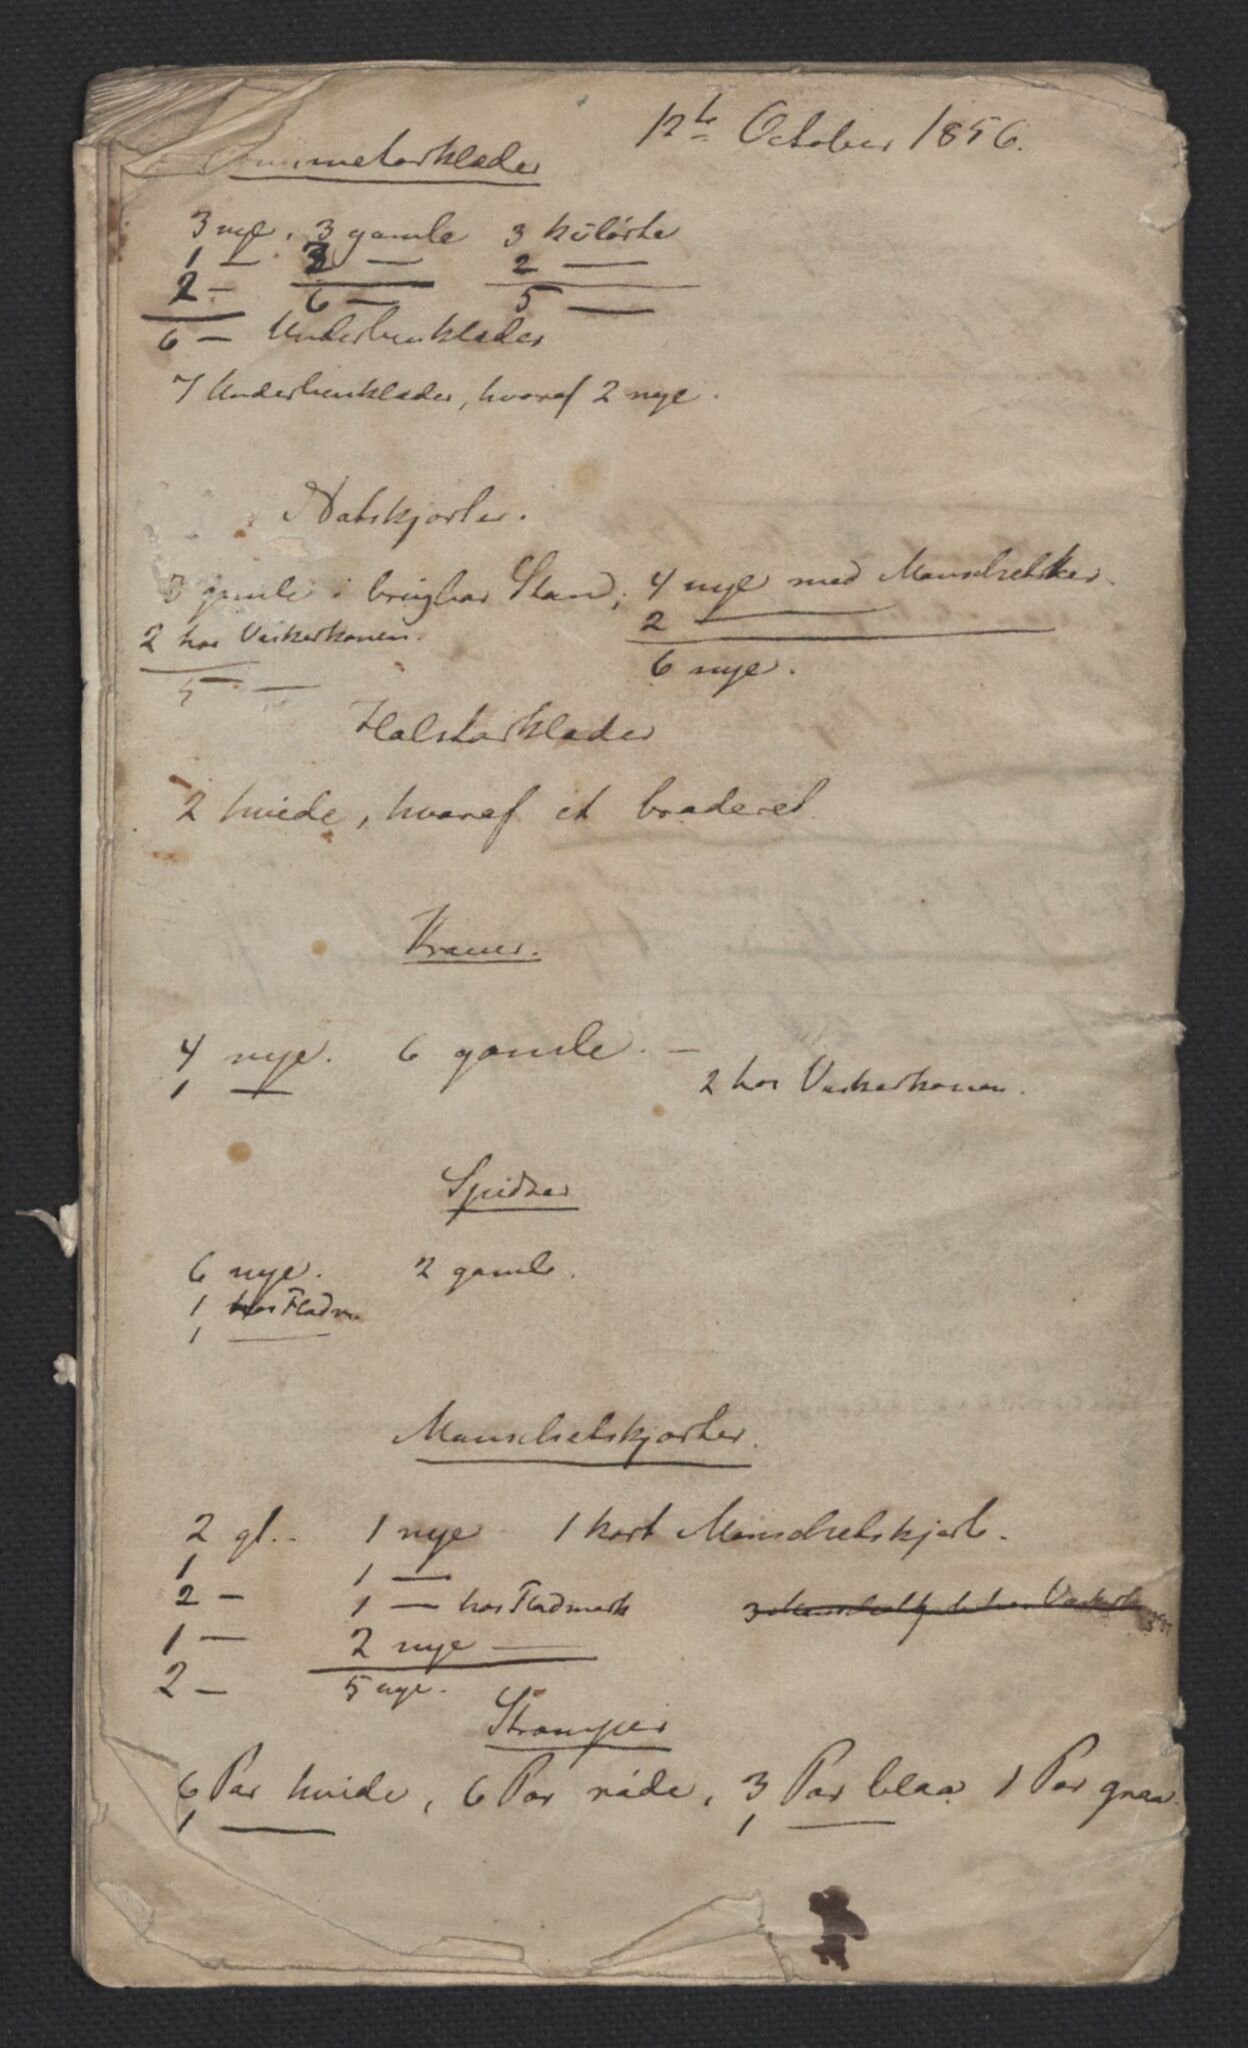 12te October 1856.
Lommetørklæder
3 nye, 3 gamle 3 kulørte
1 — 3 — 2 —
2 — 6 — 5 —
6 — Underbenklæder
7 Underbenklæder, hvoraf 2 nye.
Natskjorter.
3 gamle i brugbar Stand; 4 nye med Manschetsker.
2 hos Vaskerkonen. 2 —
5 — 6 nye.
Halstørklæder
2 hvide, hvoraf et broderet
Kraver.
4 nye. 6 gamle. —
1 — 2 hos Vaskerkonen.
Spidser
6 nye. 2 gamle.
1 hos Fladm.
1 —
Manschetskjorter.
2 gl. - 1 nye 1 kort Manschetskjorte.
1 1 —
2 — 1 — hos Fladmark 3
1 — 2 nye —
2 — 5 nye.
Strømper
6 Par hvide, 6 Par røde, 3 Par blaa 1 Par graa.
1 — 1 —